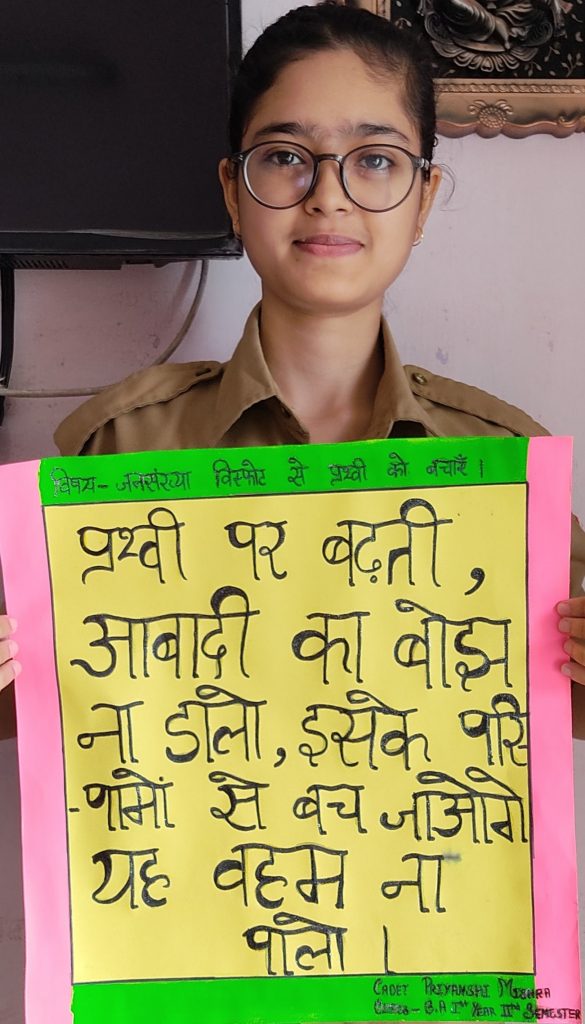 विषय- जनसंख्या विस्फोट से प्रथ्वी को बचाएँ।
प्रथ्वी पर बढ़ती,
आबादी का बोझ
ना डालो, इसके परि
-णामों से बच जाओगे
यह वहम ना
पालो।
CADET PRIYANSHI MISHRA
CLASS- B.A Iˢᵗ YEAR IIⁿᵈ SEMESTER